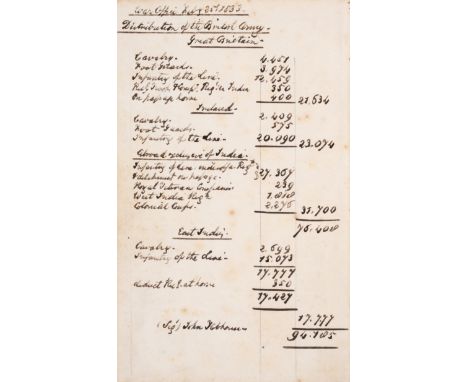 War Office Feby 25th 1833
Distribution of the British Army.
Great Britain.
Cavalry. 4.451
Foot Guards. 3.974
Infantry of the Line. 12.459
350
On passage home 400 21.634
Ireland.
Cavalry. 2.409
Foot Guards. 575
Infantry of the Line. 20.090 23.074
Abroad exclusive of India.
Infantry of Line
& detachment on passage. 27.367
Royal Veteran Companies 239
West India Regts 1.818
Colonial Corps. 2.276 31.700
76.408
East India.
Cavalry. 2.699
Infantry of the Line. 15.073
17.777
deduct at home 350
17.427
17.777
(Sigd) John Hobhouse. 94.185